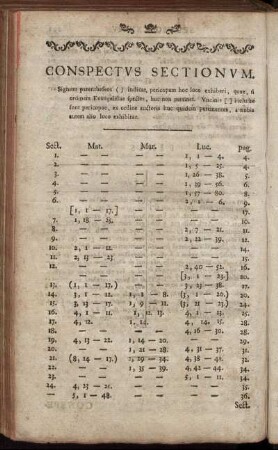 CONSPECTVS SECTIONVM.
Signum parentheseos ( ) indicat, pericopam hoc loco exhiberi, quae, si
ordinem Evangelistae spectes, huc non pertinet. Vncinis [ ] inclusae
sunt pericopae, ex ordine auctoris huc quidem pertinentes, a nobis
autem alio loco exhibitae.
Sect. Mat. Mar. Luc. pag.
1. — — 1, 1 — 4.
2. — — 1, 5 — 25. 24.
3. — — 1, 26 — 38.
4. — — 1, 39 — 56.
5. — — 1, 57 — 80.
6. — — 2, 1 — 6.
[1, 1 — 17.] — —
7. 1, 18 — 25. — —
8. — — 2, 7 — 21.
9. — — 2, 22 — 39.
10. 2, 1 — 12. — —
11. 2, 13 — 23 — —
12. — — 2, 40 — 52. 16.
— — [3, 1 — 20.]
13. (1, 1 — 17.) — 3, 23 — 38.
14. 3, 1 — 12. 1, 1 — 8. (3, 1 — 20.)
15. 3, 13 — 17. 1, 9 — 11. (3, 21 — 23.) 24.
16. 4, 1 — 11. 1, 12. 13. 4, 1 — 13.
17. 4, 12. 1, 14. 4, 14, 15. 28.
18. — — 4, 16 — 30.
19. 4, 13 — 22. 1, 14 — 20. —
20. — 1, 21 — 28. 4, 31 — 37.
21. (8, 14 — 17.) 1, 29 — 34. 4, 38 — 41.
22. — 1, 35 — 39. 4, 42 — 44.
23. — — 5, 1 — 11.
24. 4, 23 — 25. — —
25. — 5, 1 — 48. — — 36.
Sect.